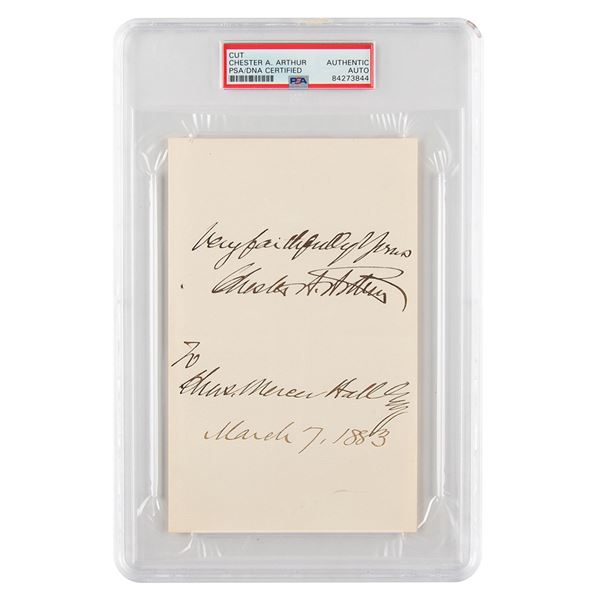 CUT
CHESTER A. ARTHUR
PSA/DNA CERTIFIED
AUTHENTIC
AUTO
84273844
PSA
Very faithfully Yours
Chester A. Arthur
To
Chas. Mercer Hall Esq
March 7, 1883